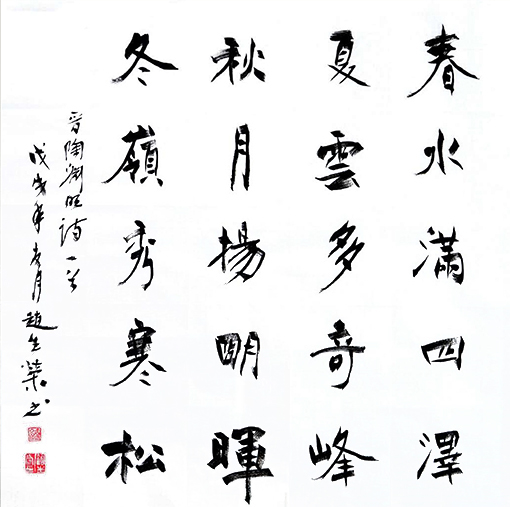 春水滿四澤
夏雲多奇峰
秋月揚明暉
冬嶺秀寒松
晉陶淵明詩一首
戊戌年春月趙生榮書